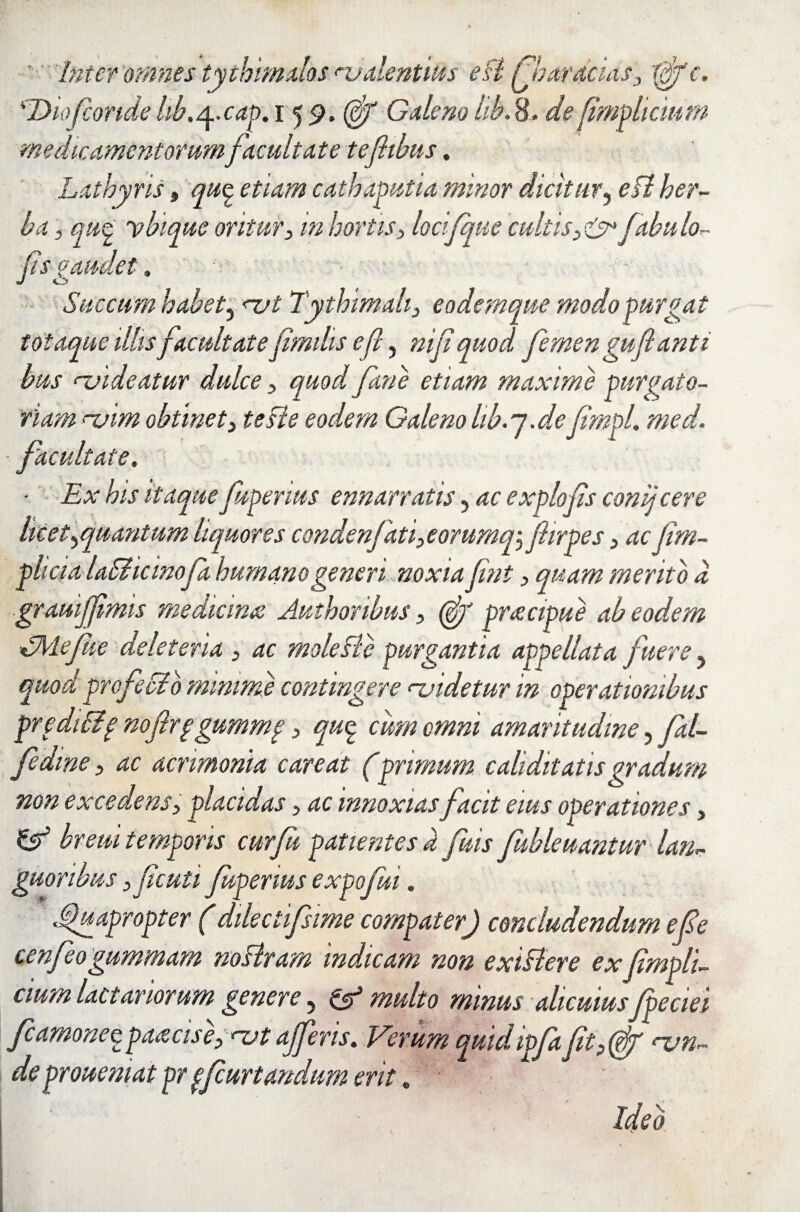 Inter omnes tythimalos valentius est Characias, &c.
Dioscoride lib.4.cap.159. & Galeno lib.8. de simplicium
medicamentorum facultate testibus.
Lathyris, quę etiam cathaputia minor dicitur, est her-
ba, quę vbique oritur, in hortis, locisque cultis, & sabulo-
sis gaudet.
Succum habet, vt Tythimali, eodemque modo purgat
totaque illis facultate similis est, nisi quod semen gustanti
bus videatur dulce, quod sanè etiam maximè purgato-
riam vim obtinet, teste eodem Galeno lib.7.de simpl. med.
facultate.
Ex his itaque superius ennarratis, ac explosis conijcere
licet, quantum liquores condensati, eorumq; stirpes, ac sim-
plicia lacticinosa humano generi noxia sint, quam meritò à
grauissimis medicinæ Authoribus, & præcipuè ab eodem
Mesue deleteria, ac molestè purgantia appellata fuere,
quod profectò minimè contingere videtur in operationibus
prędictę nostrę gummę, quę cùm omni amaritudine, sal-
sedine, ac acrimonia careat (primum caliditatis gradum
non excedens, placidas, ac innoxias facit eius operationes,
& breui temporis cursu patientes à suis subleuantur lan-
guoribus, sicuti superius exposui.
Quapropter (dilectissime compater) concludendum esse
censeo gummam nostram indicam non existere ex simpli-
cium lactariorum genere, & multo minus alicuius speciei
scamoneę paæcisè, vt asseris. Verùm quid ipsa sit, & vn-
de proueniat pręscurtandum erit.
Ideò